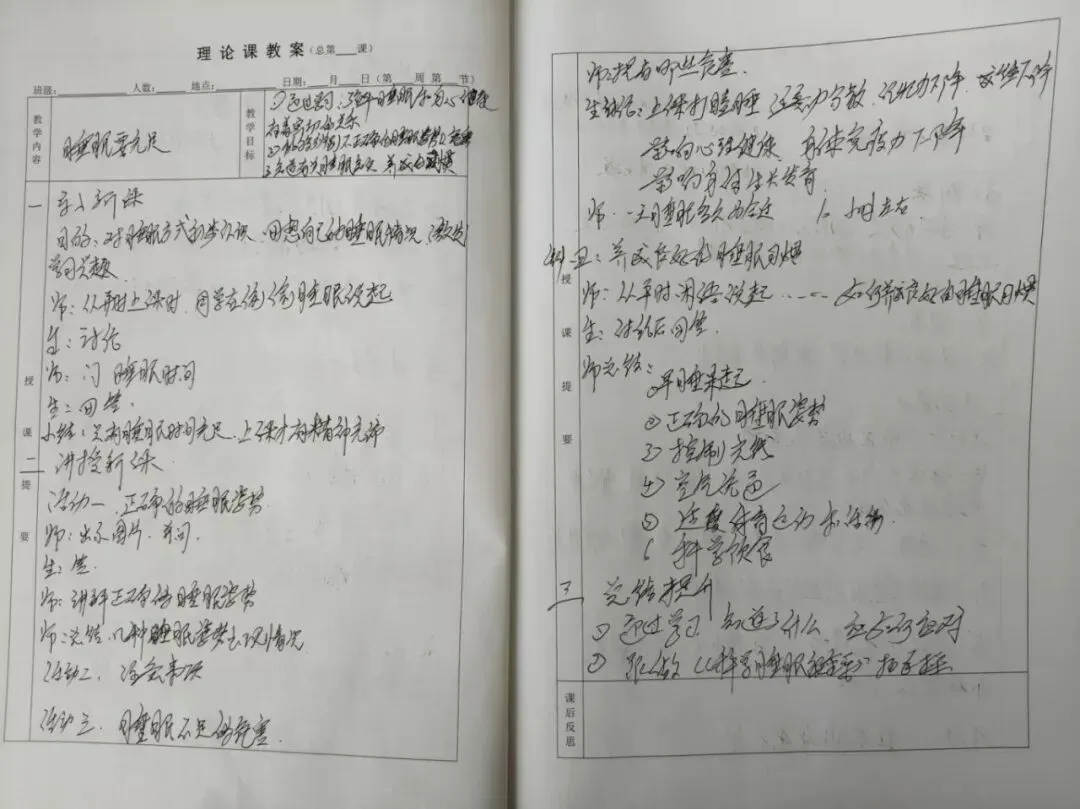 理论课教案（总第___课）
班级：____人数：____地点：____日期：__月__日（第__周第__节）
教学内容
睡眠要充足
教学目标
①通过学习
授课提要
一 导入新课
目的：对睡眠方式初步认识，回想自己的睡眠情况，激发
学习兴趣
师：从平时上课时，同学在
生：讨论
师：问 睡眠时间
生：回答
小结：只有睡眠时间充足，上课才有精神充沛
二 讲授新课
活动一 正确的睡眠姿势
师：出示图片，并问
生：答
师：讲解正确的睡眠姿势
师：总结，几种睡眠姿势出现情况
活动二、注意事项
活动三、睡眠不足的危害
师：提有哪些危害
生讨论：上课打瞌睡 注意力分散，记忆力下降，
影响心理健康 身体免疫力下降
影响身体生长发育
师：一天睡眠多久为合适 小时左右
养成良好的睡眠习惯
师：从平时 说起……如何养成良好的睡眠习惯
生：讨论后回答
师总结：
①早睡早起
②正确的睡眠姿势
③控制光线
④空气流通
⑤适量体育运动和活动
6 科学饮食
三 总结提升
①通过学习 知道了什么，应如何应对
②
授课提要
课后反思